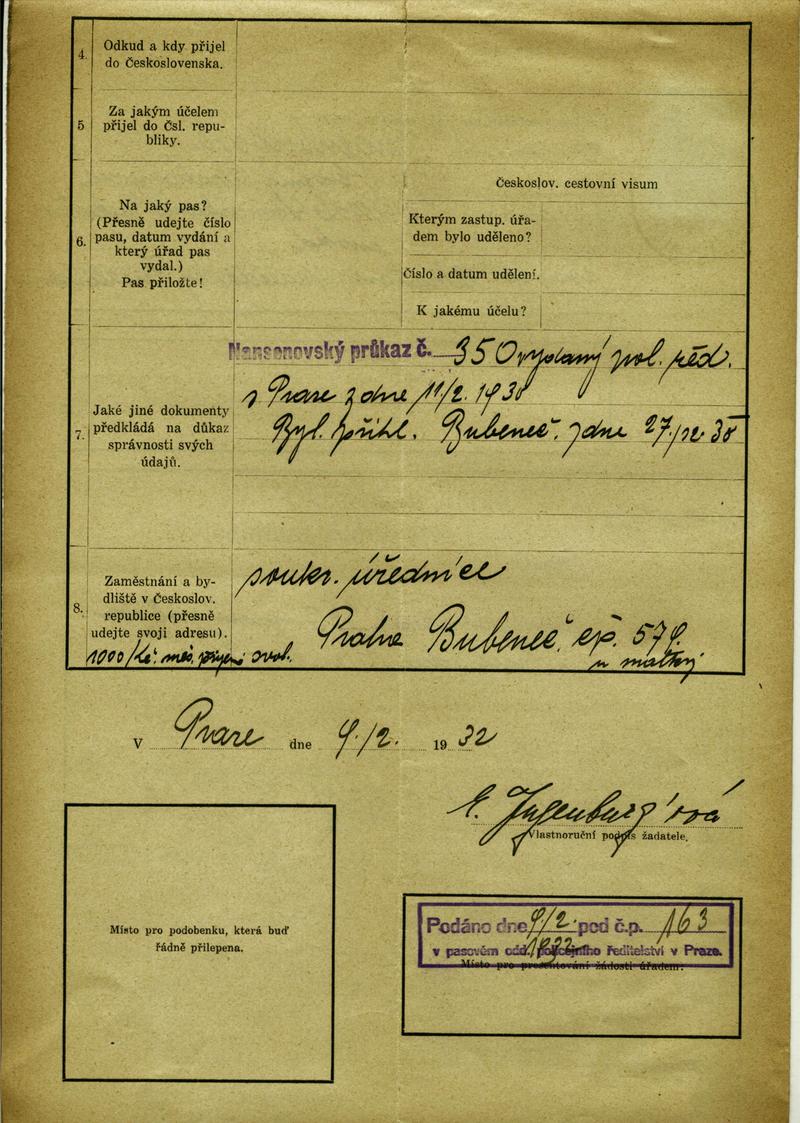 4. Odkud a kdy přijel
do Československa.
5 Za jakým účelem
přijel do Čsl. repu-
bliky.
6. Na jaký pas?
(Přesně udejte číslo
pasu, datum vydání a
který úřad pas
vydal.)
Pas přiložte!
Českoslov. cestovní visum
Kterým zastup. úřa-
dem bylo uděleno?
Číslo a datum udělení.
K jakému účelu?
7. Jaké jiné dokumenty
předkládá na důkaz
správnosti svých
údajů.
Nansenovský průkaz č. 350 vydaný pol. řed.
v Praze z dne 11/2. 1930
Byt. přihl. Bubeneč. z dne 27./12 30
8. Zaměstnání a by-
dliště v Českoslov.
republice (přesně
udejte svoji adresu).
soukr. úřednice
Praha Bubeneč, čp. 579.
u matky.
1000 Kč. měs. příjem svob.
V Praze dne 9./2. 1932
Vlastnoruční podpis žadatele.
Místo pro podobenku, která buď
řádně přilepena.
Podáno dne 9/2. pod č.p. 163
1932
v pasovém odd. policejního ředitelství v Praze.
Místo pro presentování žádosti úřadem.